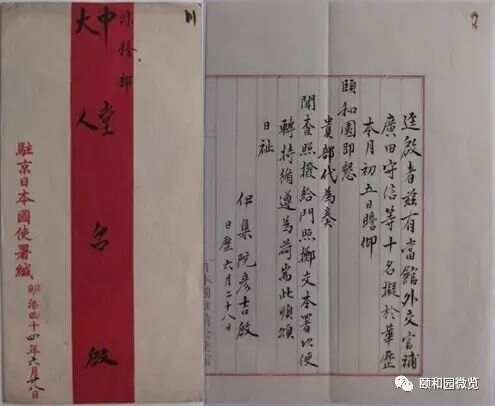 外務部
中堂
大人
啟
駐京日本國使署緘
明治四十四年六月廿八日
逕啟者茲有當館外交官補
廣田守信等十名擬於華歷
本月初五日瞻仰
頤和園即懇
貴部代為奏
聞查照撥給門照擲交本署以便
轉持循遵為荷耑此順頌
日祉
伊集院彥吉啟
日歷六月二十八日
颐和园微览